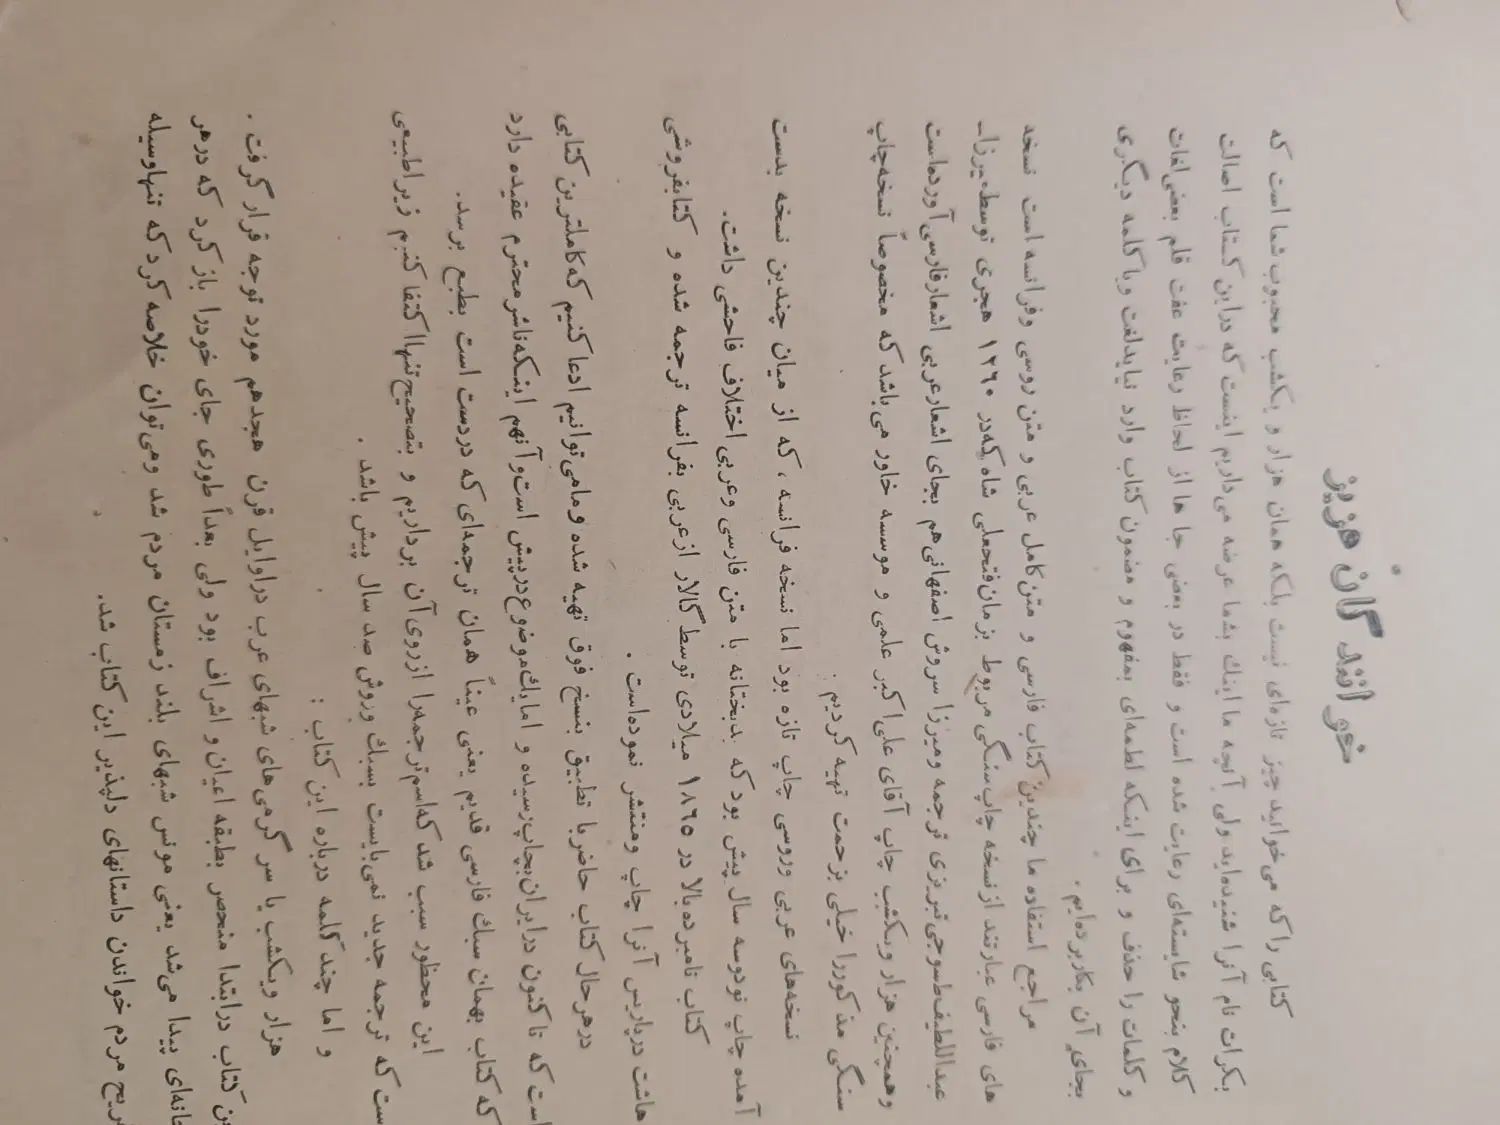 خوانندگان عزیز
کتابی را که می‌خوانید چیز تازه‌ای نیست بلکه همان هزار و یکشب محبوب شما است که
بکرات نام آنرا شنیده‌اید ولی آنچه ما اینك بشما عرضه می‌داریم اینست که در این کتاب اصالت
کلام بنحو شایسته‌ای رعایت شده است و فقط در بعضی جا ها از لحاظ رعایت عفت قلم بعضی لغات
و کلمات را حذف و برای اینکه لطمه‌ای بمفهوم و مضمون کتاب وارد نیاید لغت و یا کلمه دیگری
بجای آن بکار برده‌ایم .
مراجع استفاده ما چندین کتاب فارسی و متن کامل عربی و متن روسی و فرانسه است نسخه
های فارسی عبارتند از نسخه چاپ سنگی مربوط بزمان فتحعلی شاه که در ۱۲۶۰ هجری توسط میرزا-
عبداللطیف طسوجی تبریزی ترجمه و میرزا سروش اصفهانی هم بجای اشعار عربی اشعار فارسی آورده است
و همچنین هزار و یکشب چاپ آقای علی اکبر علمی و موسسه خاور می‌باشد که مخصوصاً نسخه چاپ
سنگی مذکور را خیلی بزحمت تهیه کردیم :
نسخه‌های عربی و روسی چاپ تازه بود اما نسخه فرانسه ، که از میان چندین نسخه بدست
آمده چاپ نود و سه سال پیش بود که بدبختانه با متن فارسی و عربی اختلاف فاحشی داشت.
کتاب نامبرده بالا در ۱۸۶۵ میلادی توسط گالار از عربی بفرانسه ترجمه شده و کتابفروشی
هاشت در پاریس آنرا چاپ و منتشر نموده است .
در هر حال کتاب حاضر با تطبیق بنسخ فوق تهیه شده و ما می‌توانیم ادعا کنیم که کاملترین کتابی
است که تا کنون در ایران بچاپ رسیده و اما یك موضوع در پیش است و آنهم اینکه ناشر محترم عقیده دارد
که کتاب بهمان سبك فارسی قدیم یعنی عیناً همان ترجمه‌ای که در دست است بطبع برسد.
این محظور سبب شد که اسم ترجمه را از روی آن برداریم و بتصحیح تنها اکتفا کنیم زیرا طبیعی
ست که ترجمه جدید نمی‌بایست بسبك و روش صد سال پیش باشد .
و اما چند کلمه درباره این کتاب :
هزار و یکشب یا سر گرمی‌های شبهای عرب در اوایل قرن هجدهم مورد توجه قرار گرفت .
ین کتاب در ابتدا منحصر بطبقه اعیان و اشراف بود ولی بعداً طوری جای خود را باز کرد که در هر
خانه‌ای پیدا می‌شد یعنی مونس شبهای بلند زمستان مردم شد و می‌توان خلاصه کرد که تنها وسیله
فریح مردم خواندن داستانهای دلپذیر این کتاب شد.